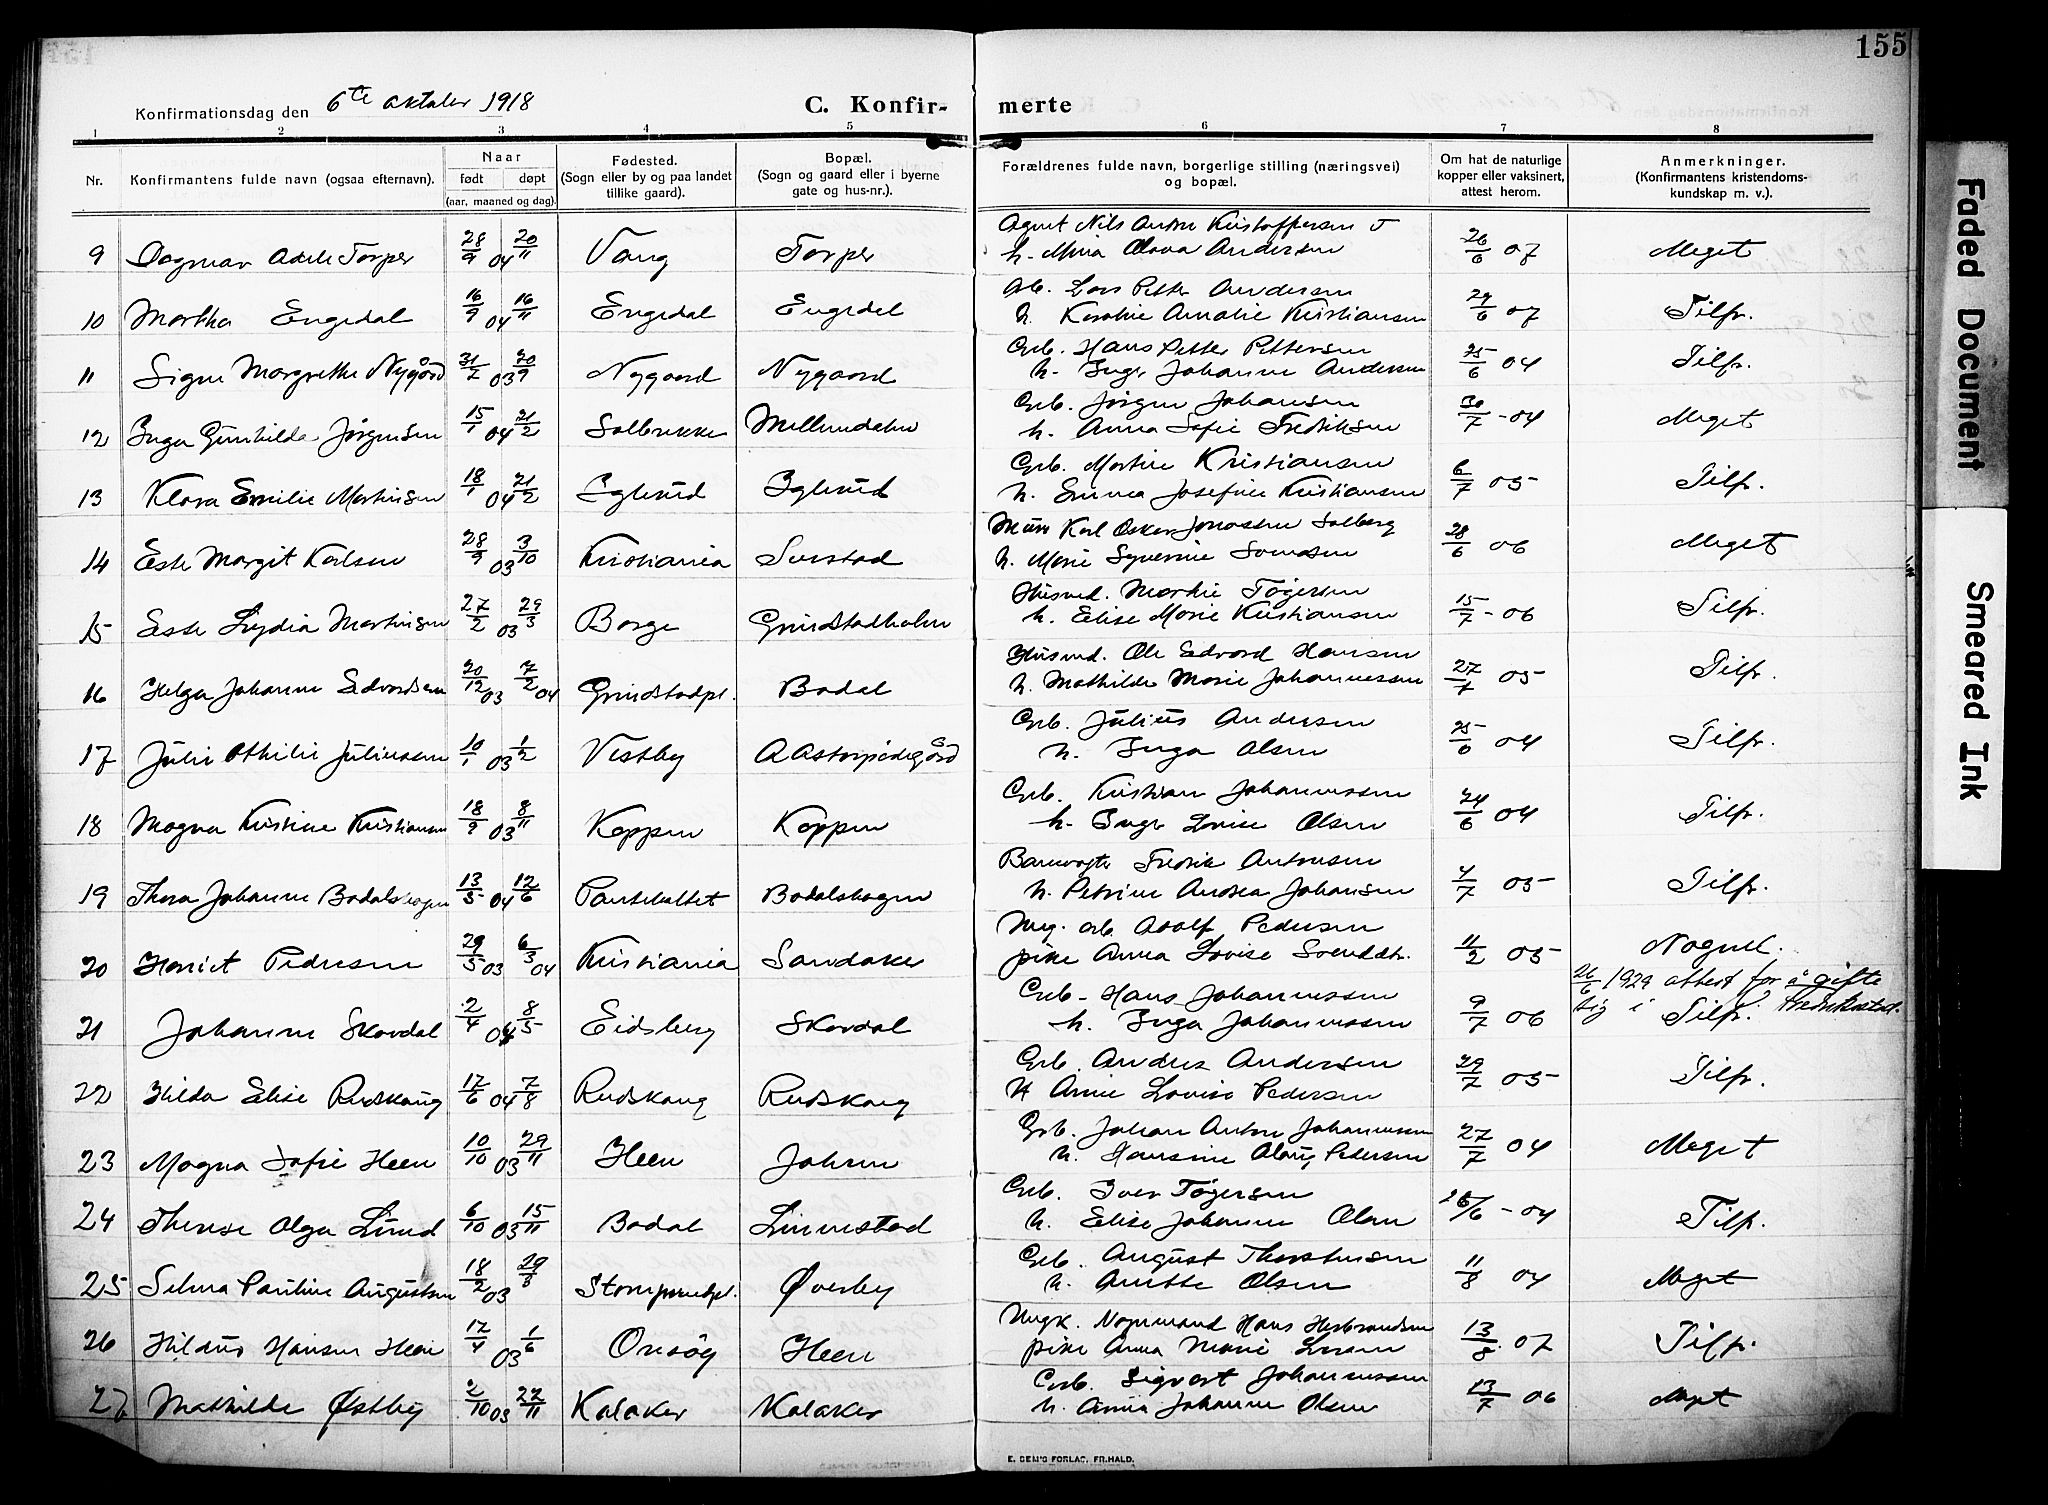 155
Konfirmationsdag den 6te oktober 1918
C. Konfir-
merte
1 2 3 4 5 6 7 8
Nr.
Konfirmantens fulde navn (ogsaa efternavn).
Naar
født døpt
(aar, maaned og dag).
Fødested.
(Sogn eller by og paa landet
tillike gaard).
Bopæl.
(Sogn og gaard eller i byerne
gate og hus-nr.).
Forældrenes fulde navn, borgerlige stilling (næringsvei)
og bopæl.
Om hat de naturlige
kopper eller vaksinert,
attest herom.
Anmerkninger.
(Konfirmantens kristendoms-
kundskap m. v.).
Agent Nils Anton Kristoffersen T
9 Dagmar Adele Torper 28/9 04 20/11 Vang Torper h. Mina Olava Andersen 26/6 07 Meget
Arb. Lars Petter Andersen
10 Martha Engedal 16/9 04 16/11 Engedal Engedal h. Karoline Amalie Kristiansen 29/6 07 Tilfr.
Arb. Hans Petter Pettersen
11 Signe Margrethe Nygård 31/7 03 20/9 Nygaard Nygaard h. Inger Johanne Andersen 25/6 04 Tilfr.
Arb. Jörgen Johansen
12 Inga Gunhilda Jörgensen 15/1 04 21/2 Solbrekke h. Anna Sofie Fredriksen 30/7 - 04 Meget
Arb. Martin Kristiansen
13 Klara Emilie Martinsen 18/1 04 21/2 Iglerud Iglerud h. Emma Josefine Kristiansen 6/7 05 Tilfr.
Murer Karl Oskar Jonassen Solberg
14 Ester Margit Karlsen 28/9 03 3/10 Kristiania h. Marie Syverine 28/6 06 Meget
Husmd. Martin Tögersen
15 Ester Lydia Martinsen 27/2 03 29/3 Borge Grindstadholm h. Elise Marie Kristiansen 15/7 - 06 Tilfr.
Husmd. Ole Edvard Hansen
16 Helga Johanne Edvardsen 20/12 03 7/2 04 Grindstadpl. Bodal h. Mathilde Marie Johannessen 27/7 05 Tilfr.
Arb. Julius Andersen
17 Julie Othilie Juliussen 10/1 03 1/2 Vestby h. Inga Olsen 25/6 04 Tilfr.
Arb. Kristian Johannessen
18 Magna Kristine Kristiansen 18/9 03 8/11 Koppen Koppen h. Inger Lovise Olsen 24/6 04 Tilfr.
Banevogter Fredrik Antonsen
19 Thora Johanne Bodalskogen 13/5 04 12/6 Bodalskogen h. Petrine Andrea Johansen 4/7 05 Tilfr.
Ung. arb. Adolf Pedersen
20 Harriet Pedersen 29/5 03 6/3 04 Kristiania Sandaker pike Anna Lovise Svendsdtr. 11/2 05 Nogsel.
26/6 1929 attest for å gifte
sig i Fredrikstad.
Arb. Hans Johannessen
21 Johanne Skovdal 2/4 04 8/5 Eidsberg Skovdal h. Inga Johannessen 9/7 06 Tilfr.
Arb. Anders Andersen
22 Hilda Elise Rudskaug 17/6 04 7/8 Rudskaug Rudskaug h. Anne Lovise Pedersen 29/7 05 Tilfr.
Arb. Johan Anton Johannessen
23 Magna Sofie Heen 10/10 03 29/11 Heen h. Hansine Pedersen 27/7 04 Meget
Arb. Iver Tögersen
24 Therese Olga Lund 6/10 03 15/11 Bodal Linnestad h. Elise Johanne Olsen 26/6 - 04 Tilfr.
Arb. August Thorstensen
25 Selma Pauline Augustsen 18/2 03 29/3 Øverby h. Anette Olsen 11/8 04 Meget
Ungk. Hans Herbrandsen
26 Hildur Hansen Heen 17/4 03 1/6 Onsöy Heen pike Anna Marie Larsen 13/8 07 Tilfr.
Arb. Sigvart Johannessen
27 Mathilde Østby 2/10 03 22/11 Kalaker Kalaker h. Anna Johanne Olsen 13/7 06 Meget
E. SEM'S FORLAG, FR.HALD.
Faded Document
Smeared Ink